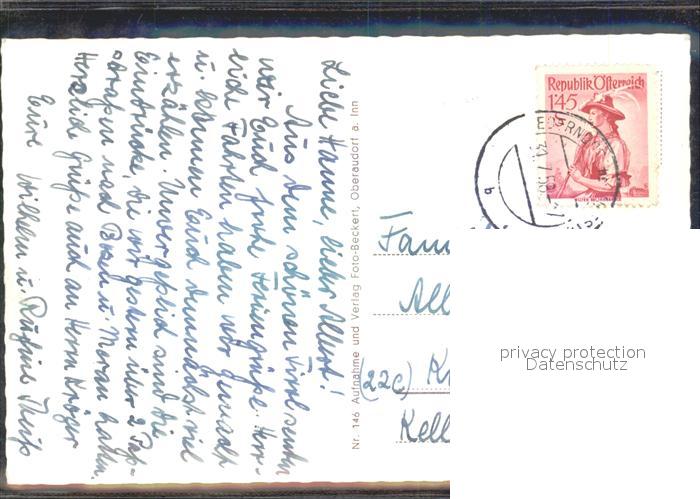 Liebe Hanne, lieber Albert!
Aus dem schönen Tirol senden
wir Euch frohe Feriengrüße. Herr-
liche Fahrten haben wir gemacht
u. können Euch demnächst viel
erzählen. Unvergeßlich sind die
Eindrücke, die wir gestern über 2 Pass-
straßen nach Bozen u. Meran hatten.
Herzliche Grüße auch an Herrn Kröger
Eure Wilhelm u.
Nr. 146 Aufnahme und Verlag Foto-Beckert, Oberaudorf a. Inn
Republik Österreich
145
b
Fam
All
(22c) K
Kell
privacy protection
Datenschutz